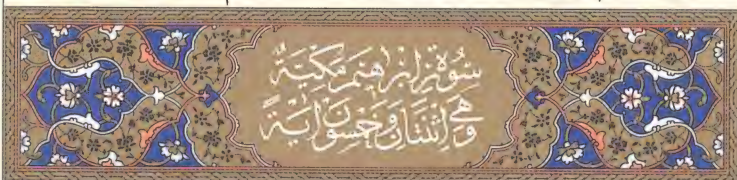 سُورَةُ إِبْرٰهِيمَ مَكِّيَّةٌ
وَهِيَ اثْنَتَانِ وَخَمْسُونَ اٰيَةً